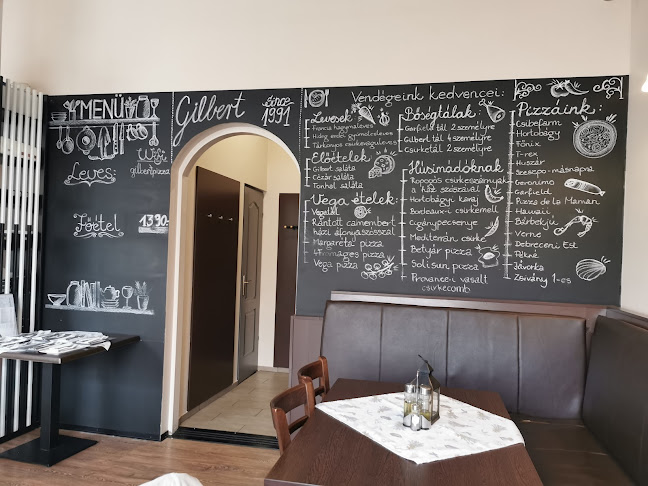 MENÜ
Wifi:
gilbertpizza
Leves:
Főétel
1390.-
Gilbert
since
1991
Vendégeink kedvencei:
Levesek
Francia hagymaleves
Hideg erdei gyümölcsleves
Tárkonyos csirkeraguleves
Előételek
Gilbert saláta
Cézár saláta
Tonhal saláta
Vega ételek:
Vegatál
Rántott camembert
házi áfonyaszósszal
Margaréta pizza
4 Fromages pizza
Vega pizza
Bőségtálak:
Garfield tál 2 személyre
Gilbert tál 4 személyre
Csirketál 2 személyre
Húsimádóknak
Ropogós csirkeszárnyak
a ház szószával
Hortobágyi karaj
Bordeaux-i csirkemell
Cigánypecsenye
Mediterrán csirke
Betyár pizza
Soli sun pizza
Provence-i vasalt
csirkecomb
Pizzáink:
Csibefarm
Hortobágy
Főnix
T-rex
Huszár
Szecspo-másnapra
Geronimo
Garfield
Pizza de la Maman
Hawaii
Bárbekjú
Verne
Debreceni Est
Pékné
Jávorka
Zsivány 1-es